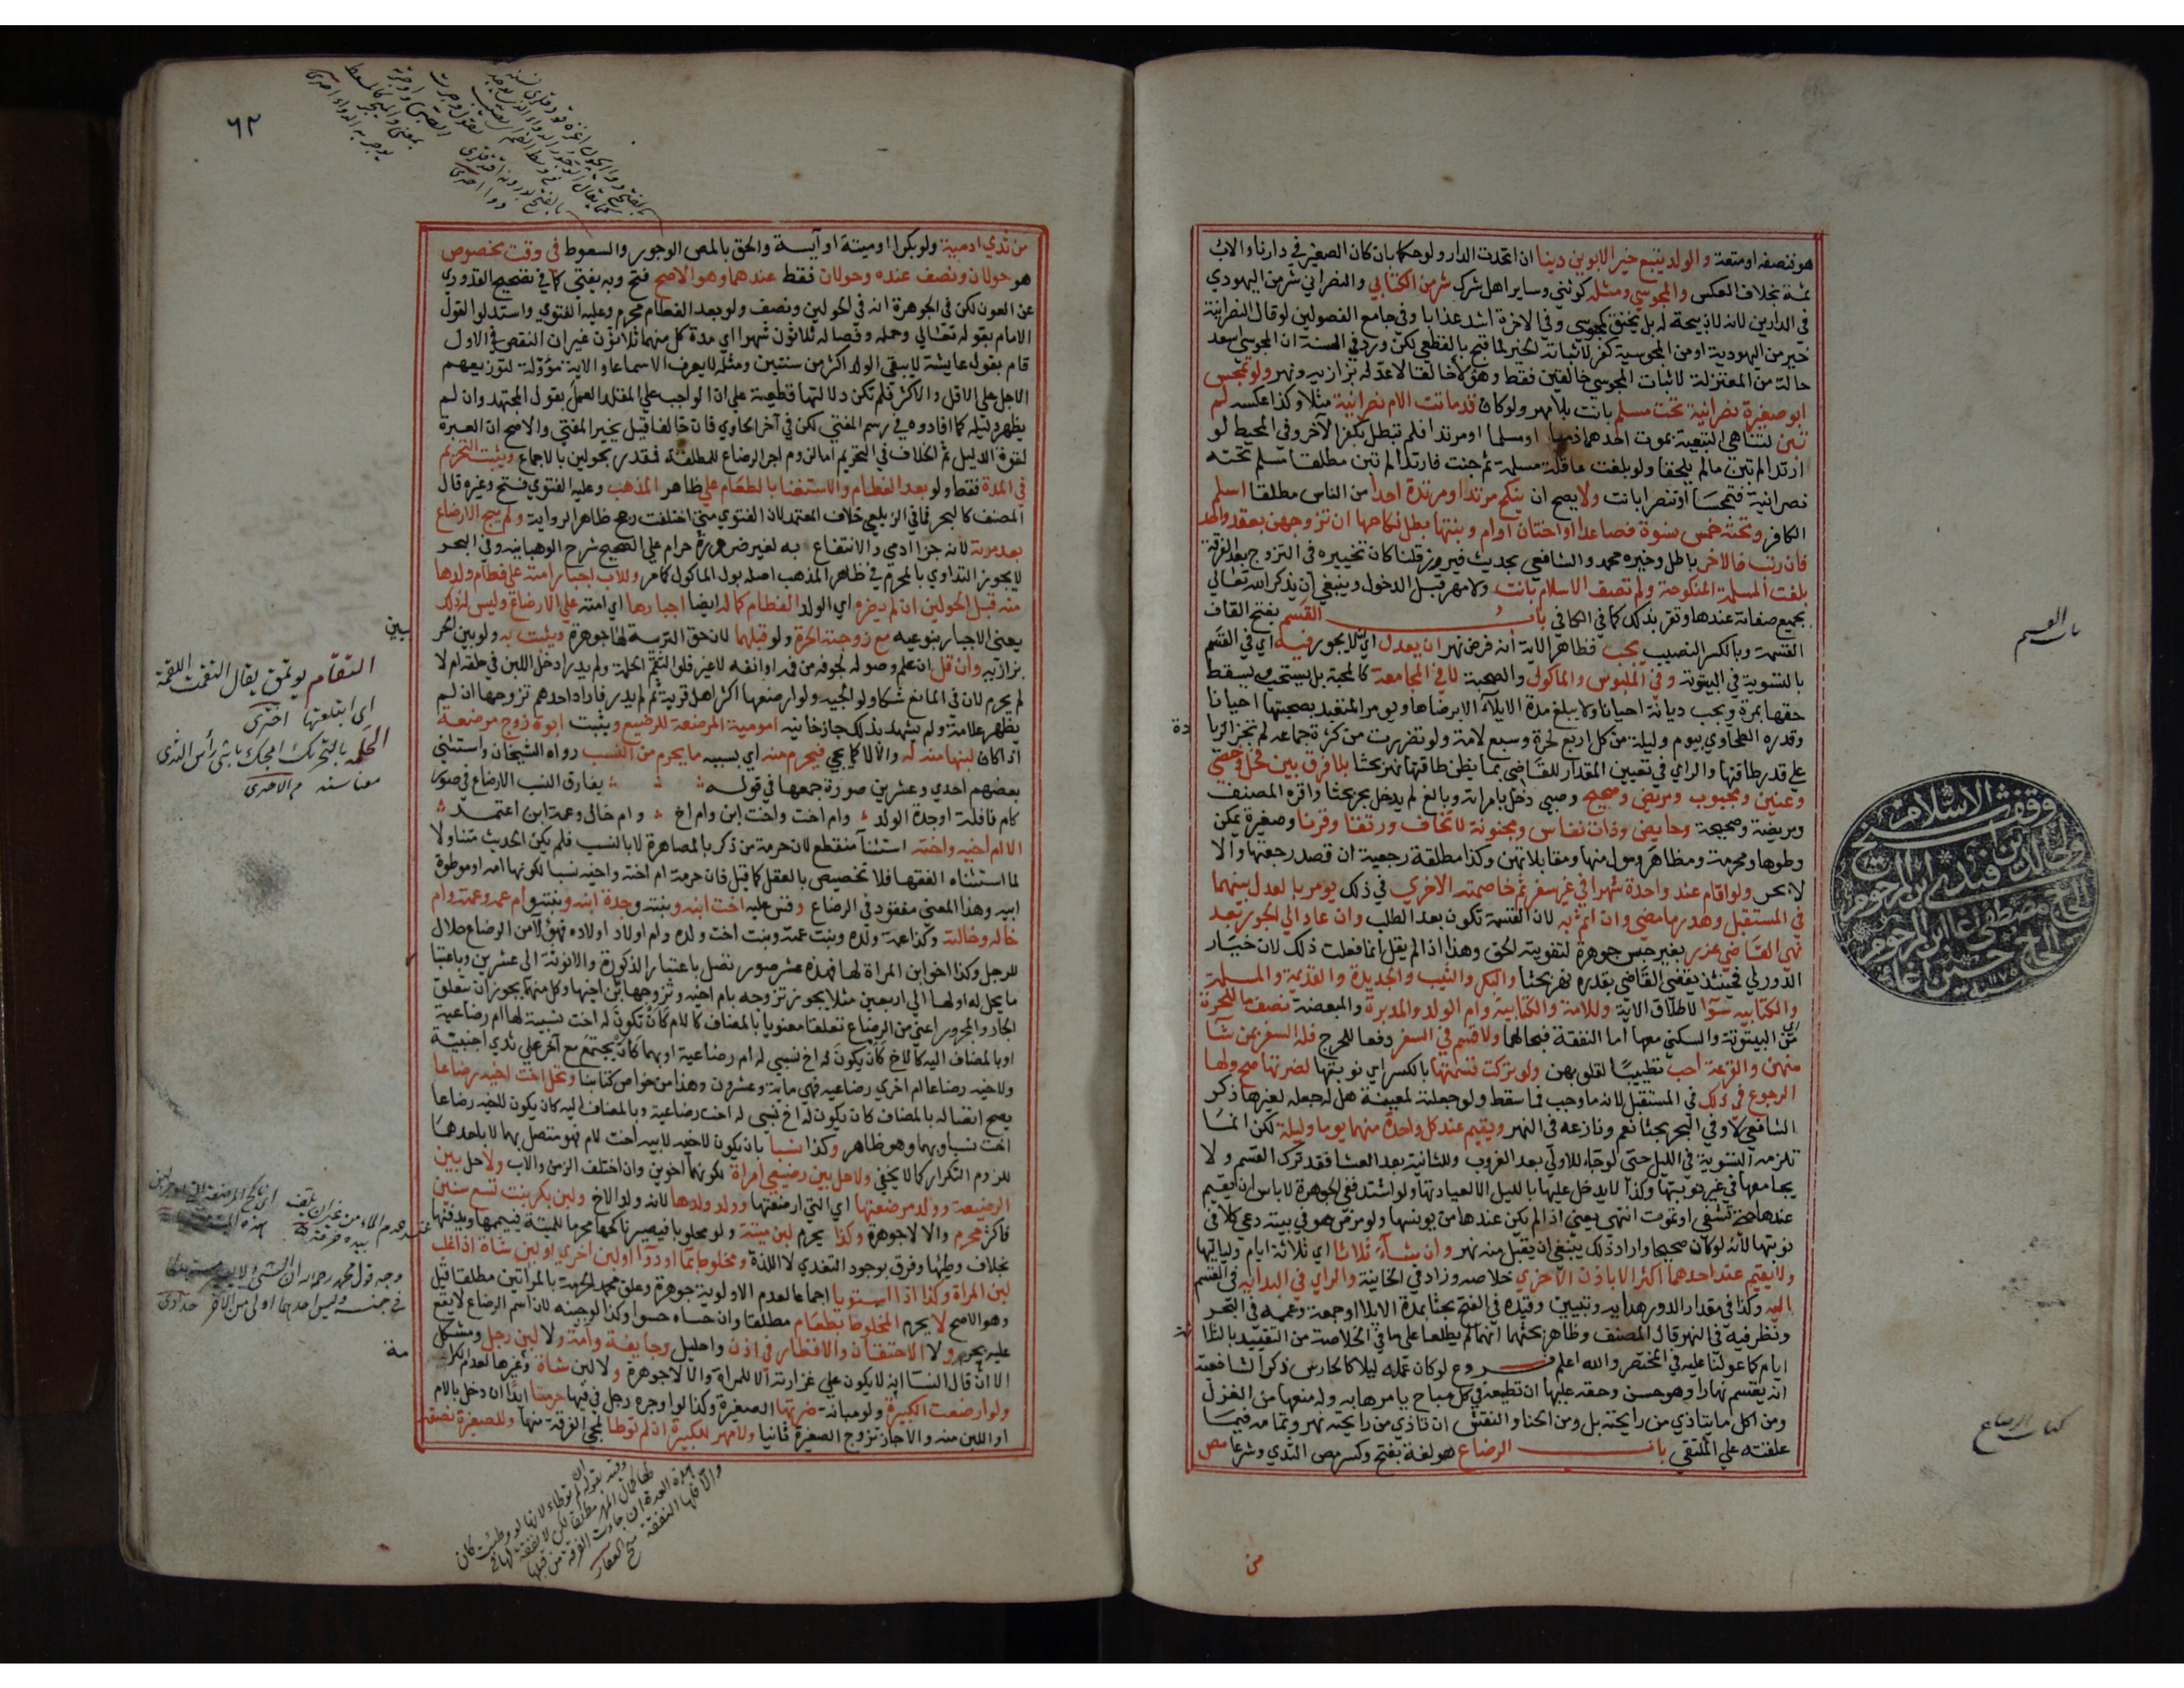 هو فنصفه او متعة والولد يتبع خير الابوين دينا ان اتحدت الدار ولو حكما بان كان الصغير في دارنا والاب
ثمة بخلاف العكس والمجوسي ومثله كوثني وساير اهل شرك شر من الكتابي والنصراني شر من اليهودي
في الدارين لانه لا ذبيحة له بل يخنق كمجوسي وفي الاخرة اشد عذابا وفي جامع الفصولين لو قال النصرانية
خير من اليهودية او من المجوسية كفر لاثباته الخير لما قبح بالقطعي لكن ورد في السنة ان المجوسي اسعد
حالة من المعتزلة لاثبات المجوسي خالقين فقط وهؤلاء خالقا لا عدله بزازيه ونهر ولو تمجس
ابو صغيرة نصرانية تحت مسلم بانت بلا مهر ولو كان قد ماتت الام نصرانية مثلا وكذا عكسه لم
تبن لتناهي التبعية بموت احدهما ذميا او مسلما او مرتدا فلم تبطل بكفر الآخر وفي المحيط لو
ارتدا لم تبن مالم يلحقا ولو بلغت عاقلة مسلمة ثم جنت فارتدا لم تبن مطلقا مسلم تحته
نصرانية فتمجسا او تنصرا بانت ولا يصح ان ينكح مرتد او مرتدة احدا من الناس مطلقا اسلم
الكافر وتحته خمس نسوة فصاعدا او اختان او ام وبنتها بطل نكاحهن ان تزوجهن بعقد واحد
فان رتب فالاخر باطل وخيره محمد والشافعي بحديث فيروز قلنا كان تخييره في التزوج بعد الفرقة
بلغت المسلمة المنكوحة ولم تصف الاسلام بانت ولا مهر قبل الدخول وينبغي ان يذكر الله تعالي
بجميع صفاته عندها وتقر بذلك كما في الكافي باب القسم بفتح القاف
القسمة وبالكسر النصيب يجب فظاهر الاية انه فرض نهر ان يعدل اي لا يجور فيه اي في القسم
بالتسوية في البيتوتة وفي الملبوس والماكول والصحبة لا في المجامعة كالمحبة بل يستحب ويسقط
حقها بمرة ويجب ديانة احيانا ولا يبلغ مدة الايلاء الا برضاها ويومر المتعبد بصحبتها احيانا
وقدره الطحاوي بيوم وليلة من كل اربع لحرة وسبع لامة ولو تضررت من كثرة جماعه لم تجز الزيا
دة
علي قدر طاقتها والراي في تعيين المقدار للقاضي بما يظن طاقتها نهر بحثا بلا فرق بين فحل وخصي
وعنين ومجبوب ومريض وصحيح وصبي دخل بامراته وبالغ لم يدخل بحر بحثا واقره المصنف
ومريضة وصحيحة وحايض وذات نفاس ومجنونة لا تخاف ورتقا وقرنا وصغيرة يمكن
وطوها ومحرمة ومظاهر ومول منها ومقابلاتهن وكذا مطلقة رجعية ان قصد رجعتها والا
لا بحر ولو اقام عند واحدة شهرا في غير سفر ثم خاصمته الاخري في ذلك يومر بالعدل بينهما
في المستقبل وهدر ما مضي وان اثم به لان القسمة تكون بعد الطلب وان عاد الي الجور بعد
نهي القاضي عزر بغير حبس جوهرة لتفويته الحق وهذا اذا لم يقل انما فعلت ذلك لان خيار
الدور لي فحينئذ يقضي القاضي بقدره نهر بحثا والبكر والثيب والجديدة والقديمة والمسلمة
والكتابيه سوآ لاطلاق الاية وللامة والكتابية وام الولد والمدبرة والمبعضة نصف ما للحرة
اي من البيتوتة والسكني معها اما النفقة فبحالهما ولا قسم في السفر دفعا للحرج فله السفر بمن شآ
منهن والقرعة احب تطييبا لقلوبهن ولو تركت قسمتها بالكسر اي نوبتها لضرتها صح ولها
الرجوع في ذلك في المستقبل لانه ما وجب فما سقط ولو جعلته لمعينة هل له جعله لغيرها ذكر
الشافعي لا وفي البحر بحثا نعم ونازعه في النهر ويقيم عند كل واحدة منهما يوما وليلة لكن انما
تلزمه التسوية في الليل حتي لو جاء للاولي بعد الغروب وللثانية بعد العشا فقد ترك القسم ولا
يجامعها في غير نوبتها وكذا لا يدخل عليها بالليل الا لعيادتها ولو اشتد ففي الجوهرة لا باس ان يقيم
عندها حتي تشفي او تموت انتهي يعني اذا لم يكن عندها من يونسها ولو مرض هو في بيته دعي كلا في
نوبتها لانه لو كان صحيحا واراد ذلك ينبغي ان يقبل منه نهر وان شآء ثلاثا اي ثلاثة ايام ولياليها
ولا يقيم عند احدهما اكثر الا باذن الاخري خلاصه وزاد في الخانية والراي في البداية في القسم
اليه وكذا في مقدار الدور هدايه وتبيين وقيده في الفتح بحثا بمدة الايلا او جمعة وعممه في البحر
ونظر فيه في النهر قال المصنف وظاهر بحثهما انهما لم يطلعا علي ما في الخلاصة من التقييد بالثلا
ثة
ايام كما عولنا عليه في المختصر والله اعلم فروع لو كان عمله ليلا كالحارس ذكر الشافعية
انه يقسم نهارا وهو حسن وحقه عليها ان تطيعه في كل مباح يامرها به وله منعها من الغزل
ومن اكل ما يتاذي من رايحته بل ومن الحنا والنقش ان تاذي من رايحته نهر وتمامه فيما
علقته علي الملتقي باب الرضاع هو لغة بفتح وكسر مص الثدي وشرعا مص
من
باب القسم
وقف شيخ الاسلام
كتاب الرضاع
٦٢
من ثدي ادمية ولو بكرا او ميتة او آيسة والحق بالمص الوجور والسعوط في وقت مخصوص
هو حولان ونصف عنده وحولان فقط عندهما وهو الاصح فتح وبه يفتي كما في تصحيح القدوري
عن العون لكن في الجوهرة انه في الحولين ونصف ولو بعد الفطام محرم وعليه الفتوي واستدلوا لقول
الامام بقوله تعالي وحمله وفصاله ثلاثون شهرا اي مدة كل منهما ثلاثون غير ان النقص في الاول
قام بقول عايشة لا يبقي الولد اكثر من سنتين ومثله لا يعرف الا سماعا والاية مؤولة لتوزيعهم
الاجل علي الاقل والاكثر فلم تكن دلالتها قطعية علي ان الواجب علي المقلد العمل بقول المجتهد وان لم
يظهر دليله كما افادوه في رسم المفتي لكن في آخر الحاوي فان خالفا قيل يخير المفتي والاصح ان العبرة
لقوة الدليل ثم الخلاف في التحريم اما لزوم اجر الرضاع للمطلقة فقدر بحولين بالاجماع ويثبت التحريم
في المدة فقط ولو بعد الفطام والاستغنا بالطعام علي ظاهر المذهب وعليه الفتوي فتح وغيره قال
المصنف كالبحر فما في الزيلعي خلاف المعتمد لان الفتوي متي اختلفت رجح ظاهر الرواية ولم يبح الارضاع
بعد موته لانه جزا ادمي والانتفاع به لغير ضرورة حرام علي الصحيح شرح الوهبانيه وفي البحر
لا يجوز التداوي بالمحرم في ظاهر المذهب اصله بول الماكول كما مر وللاب اجبار امته علي فطام ولدها
منه قبل الحولين ان لم يضره اي الولد الفطام كما له ايضا اجبارها اي امته علي الارضاع وليس له ذلك
يعني الاجبار بنوعيه مع زوجته الحرة ولو قبلهما لان حق التربية لها جوهرة ويثبت به ولو بين الحر
بيين
بزازيه وان قل ان علم وصوله لجوفه من فمه او انفه لا غير فلو التقم الحلمة ولم يدر ادخل اللبن في حلقه ام لا
لم يحرم لان في المانع شكا ولوالجيه ولو ارضعها اكثر اهل قرية ثم لم يدر فاراد احدهم تزوجها ان لم
يظهر علامة ولم يشهد بذلك جاز خانيه امومية المرضعة للرضيع ويثبت ابوة زوج مرضعة
اذا كان لبنها منه له والا لا كما يجي فيحرم منه اي بسببه ما يحرم من النسب رواه الشيخان واستثني
بعضهم احدي وعشرين صورة جمعها في قوله يفارق النسب الارضاع في صور
كام نافلة او جدة الولد وام اخت واخت ابن وام اخ وام خال وعمة ابن اعتمد
الا ام اخيه واخته استثنآ منقطع لان حرمة من ذكر بالمصاهرة لا بالنسب فلم يكن الحديث متناولا
لما استثناه الفقها فلا تخصيص بالعقل كما قيل فان حرمة ام اخته واخيه نسبا لكونها امه او موطوة
ابيه وهذا المعني مفقود في الرضاع وقس عليه اخت ابنه وبنته وجدة ابنه وبنته وام عمه وعمته وام
خاله وخالته وكذا عمة ولده وبنت عمته وبنت اخت ولده وام اولاد اولاده فهؤلآ من الرضاع حلال
للرجل وكذا اخو ابن المراة لها فهذه عشر صور تصل باعتبار الذكورة والانوثة الي عشرين وباعتبا
ما يحل له او لها الي اربعين مثلا يجوز تزوجه بام اخيه وتزوجها بابن اخيها وكل منهما يجوز ان يتعلق
الجار والمجرور اعني من الرضاع تعلقا معنويا بالمضاف كالام كان تكون له اخت نسبية لها ام رضاعية
او بالمضاف اليه كالاخ كان يكون له اخ نسبي له ام رضاعية او بهما كان يجتمع مع آخر علي ثدي اجنبية
ولاخيه رضاعا ام اخري رضاعيه فهي ماية وعشرون وهذا من خواص كتابنا وتحل اخت اخيه رضاعا
يصح اتصاله بالمضاف كان يكون له اخ نسبي له اخت رضاعية وبالمضاف اليه كان يكون لاخيه رضاعا
اخت نسبا وبهما وهو ظاهر وكذا نسبا بان يكون لاخيه لابيه اخت لام فهو متصل بهما لا باحدهما
للزوم التكرار كما لا يخفي ولا حل بين رضيعي امراة لكونهما اخوين وان اختلف الزمن والاب ولا حل بين
الرضيعة وولد مرضعتها اي التي ارضعتها وولد ولدها لانه ولد الاخ ولبن بكر بنت تسع سنين
فاكثر محرم والا لا جوهرة وكذا يحرم لبن ميتة ولو محلوبا فيصير ناكحها محرما للميتة فييممها ويدفنها
بخلاف وطئها وفرق بوجود التغذي لا اللذة ومخلوط بمآ او دوآ او لبن اخري او لبن شاة اذا غلب
لبن المراة وكذا اذا استويا اجماعا لعدم الاولوية جوهرة وعلق محمد الحرمة بالمراتين مطلقا قيل
وهو الاصح لا يحرم المخلوط بطعام مطلقا وان حساه حسوا وكذا لو جبنه لان اسم الرضاع لا يقع
عليه بحر ولا الاحتقان والاقطار في اذن واحليل وجايفة وامة ولا لبن رجل ومشكل
الا ان قال النسا انه لا يكون علي غزارته الا للمراة والا لا جوهرة ولا لبن شاة وغيرها لعدم الكرا
مة
ولو ارضعت الكبيرة ولو مبانة ضرتها الصغيرة وكذا لو اوجره رجل في فيها حرمتا ابدا ان دخل بالام
او اللبن منه والا جاز تزوج الصغيرة ثانيا ولا مهر للكبيرة ان لم توطا لمجي الفرقة منها وللصغيرة نصفه
التقام يوتمق يقال التقمت اللقمة
اي ابتلعتها اختري
الحلمه بالتحريك امجك باشي رأس الثدي
معناسنه م الاختري